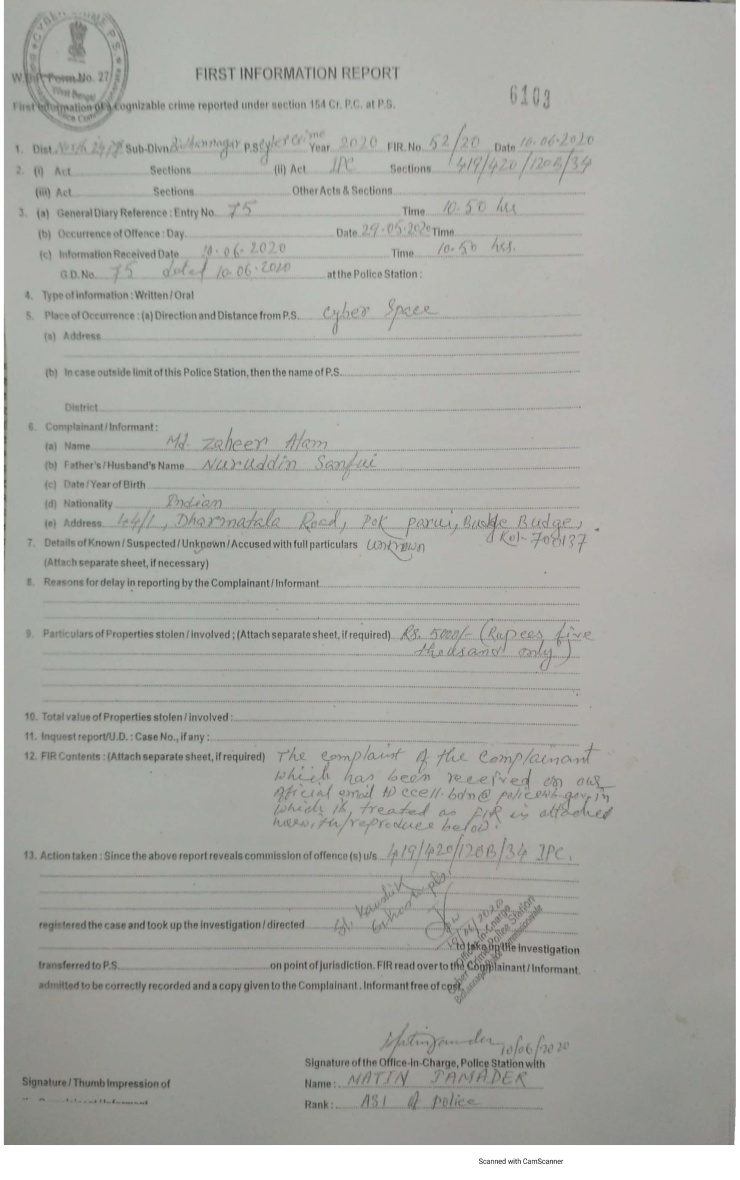 CYBER CRIME P.S.
West Bengal
W.B.P. Form No. 27
FIRST INFORMATION REPORT
6103
First information of a cognizable crime reported under section 154 Cr. P.C. at P.S.
1. Dist. North 24 Sub-Divn Bidhannagar P.S Cyber Crime Year 2020 FIR. No. 52/20 Date 10.06.2020
2. (i) Act Sections (ii) Act IPC Sections 419/420/120B/34
(iii) Act Sections Other Acts & Sections
3. (a) General Diary Reference : Entry No. 75 Time 10.50 hrs
(b) Occurrence of Offence : Day Date 29.05.2020 Time
(c) Information Received Date 10.06.2020 Time 10.50 hrs.
G.D. No. 75 dated 10.06.2020 at the Police Station :
4. Type of Information : Written / Oral
5. Place of Occurrence : (a) Direction and Distance from P.S. Cyber Space
(a) Address
(b) In case outside limit of this Police Station, then the name of P.S.
District
6. Complainant / Informant :
(a) Name Md. Zaheer Alam
(b) Father's / Husband's Name Nuruddin Sanfui
(c) Date / Year of Birth
(d) Nationality Indian
(e) Address 44/1, Dharmatala Road, Pok parui, Budge Budge,
Kol-700137
7. Details of Known / Suspected / Unknown / Accused with full particulars Unknown
(Attach separate sheet, if necessary)
8. Reasons for delay in reporting by the Complainant / Informant
9. Particulars of Properties stolen / involved ; (Attach separate sheet, if required) Rs. 5000/- (Rupees five
thousand only)
10. Total value of Properties stolen / involved :
11. Inquest report/U.D. : Case No., if any :
12. FIR Contents : (Attach separate sheet, if required) The complaint of the complainant
which has been received on our
official email ID ccell-bdn@policewb.gov.in
which is treated as FIR is attached
herewith/reproduce below.
13. Action taken : Since the above report reveals commission of offence (s) u/s 419/420/120B/34 IPC.
SI. Kaushik
registered the case and took up the investigation / directed
10/06/2020
Officer-in-Charge
Cyber Crime Police Station
to take up the investigation
transferred to P.S. on point of jurisdiction. FIR read over to the Complainant / Informant.
admitted to be correctly recorded and a copy given to the Complainant. Informant free of cost.
10/06/2020
Signature of the Office-in-Charge, Police Station with
Signature / Thumb Impression of
Name : MATIN JAMADER
Rank : ASI of police
Scanned with CamScanner